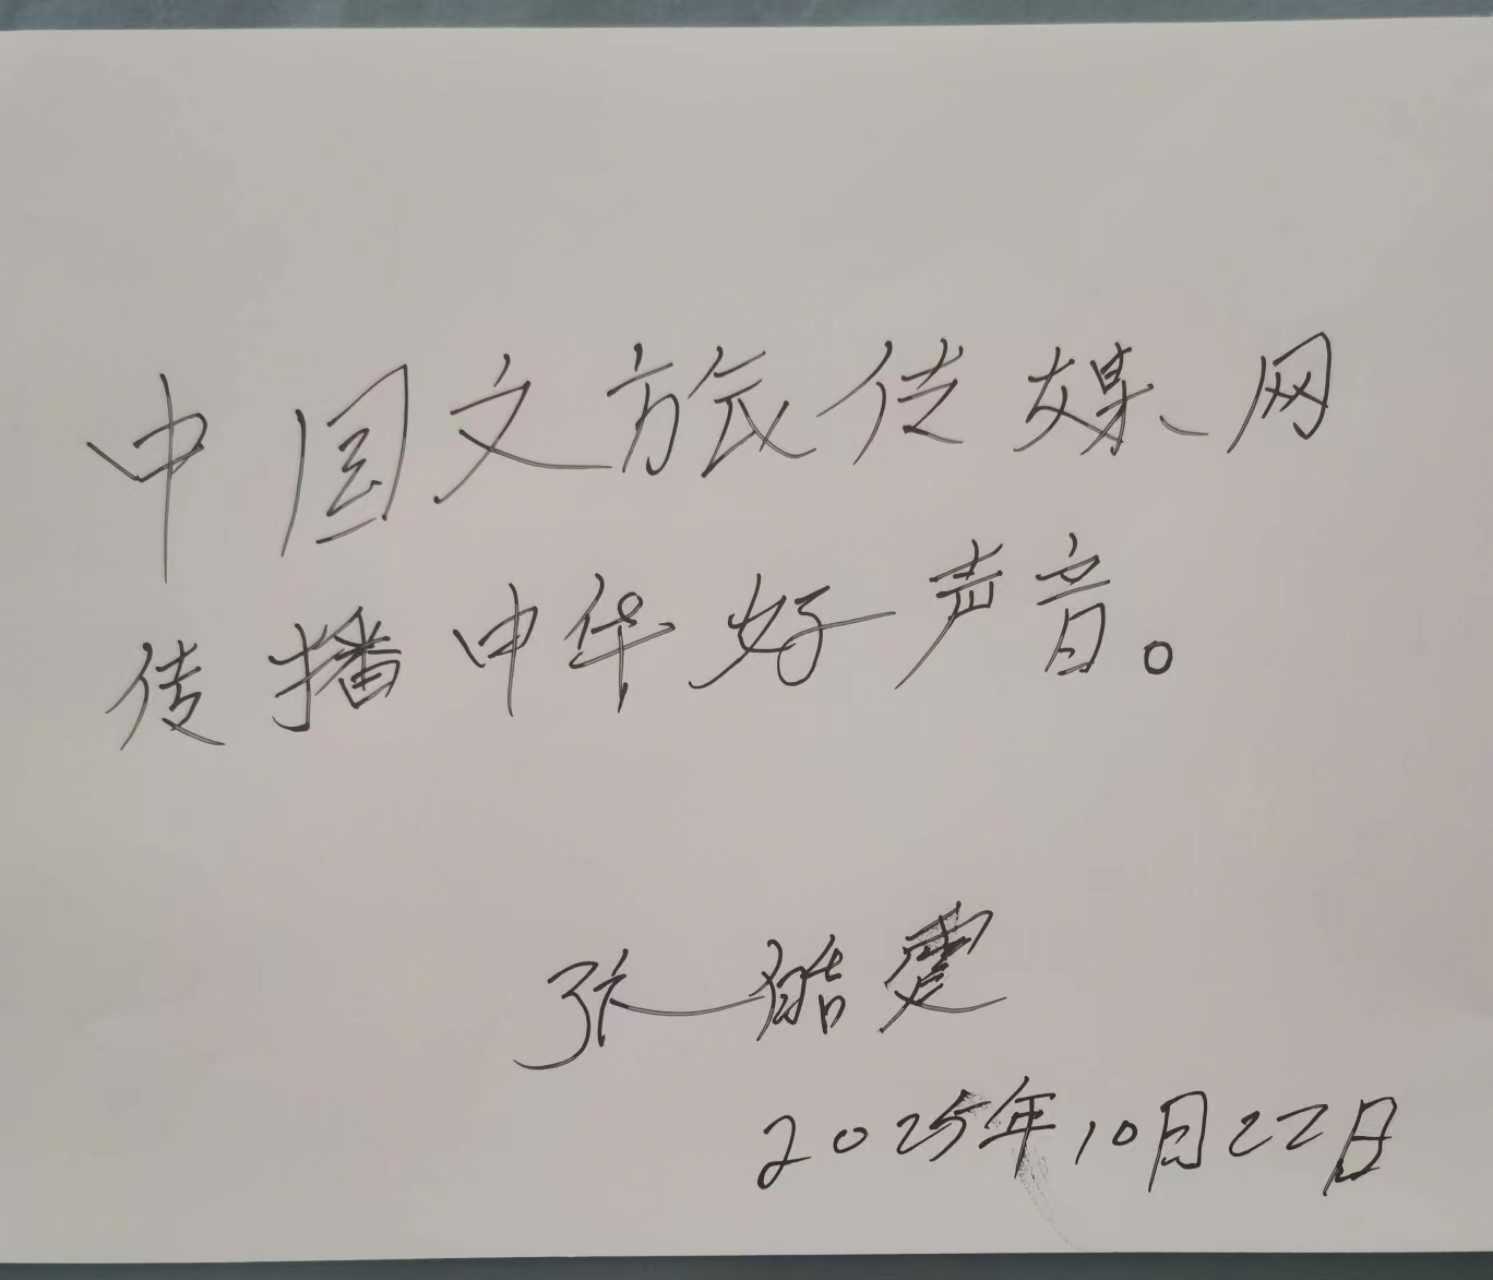 中国文旅传媒网
传播中华好声音。
张
2025年10月22日